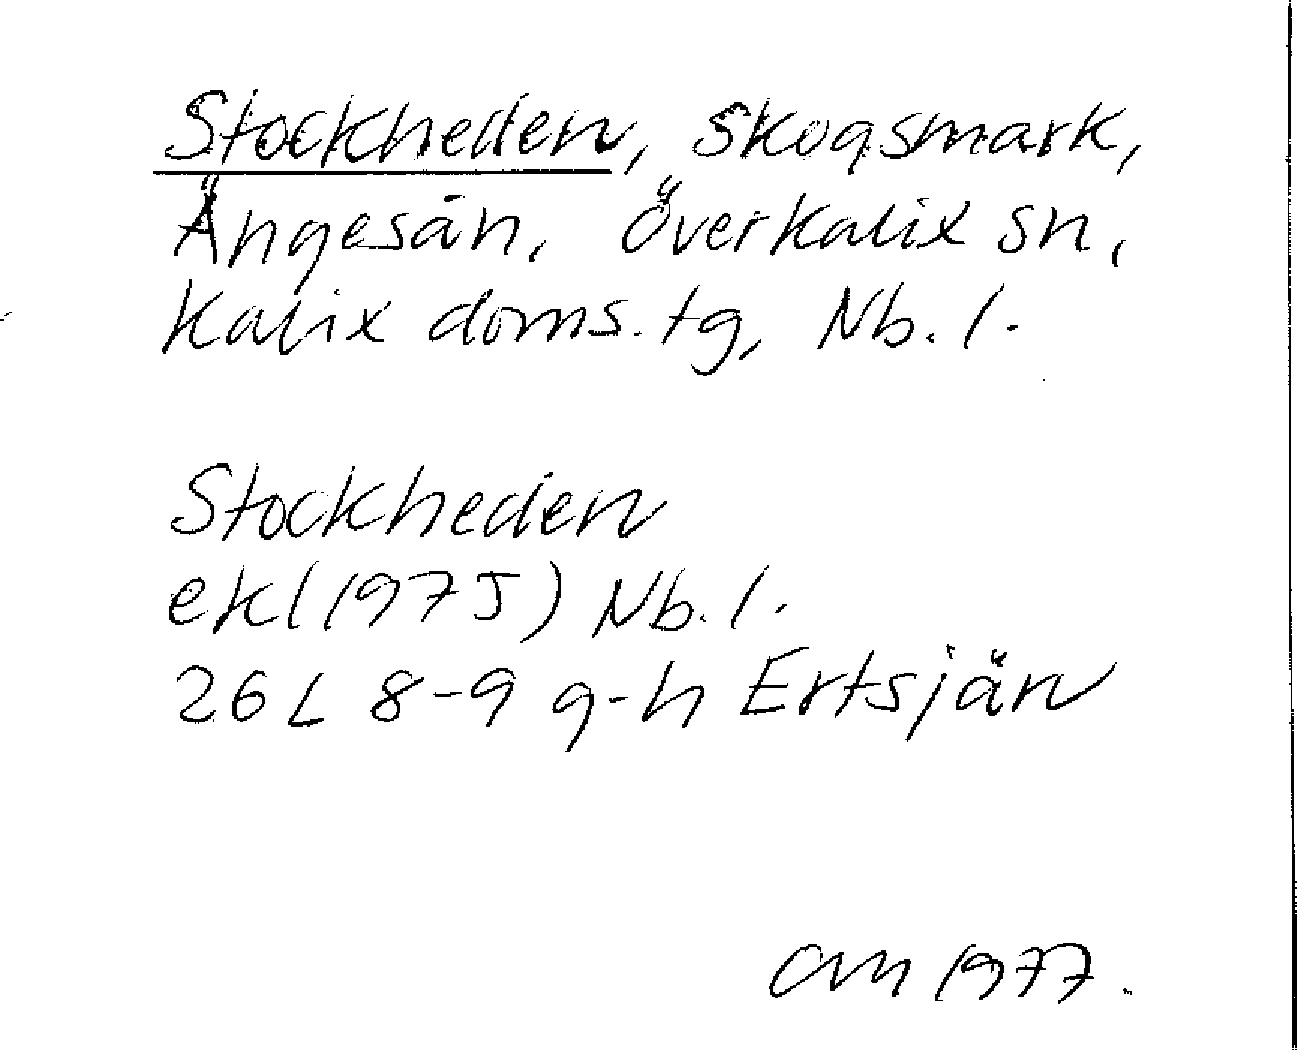 Stockheden, skogsmark,
Ängesån, Överkalix sn,
Kalix doms. tg, Nb. l.
Stockheden
ekl (1975) Nb. l.
26 L 8-9 g-h Ertsjärv
am 1977.